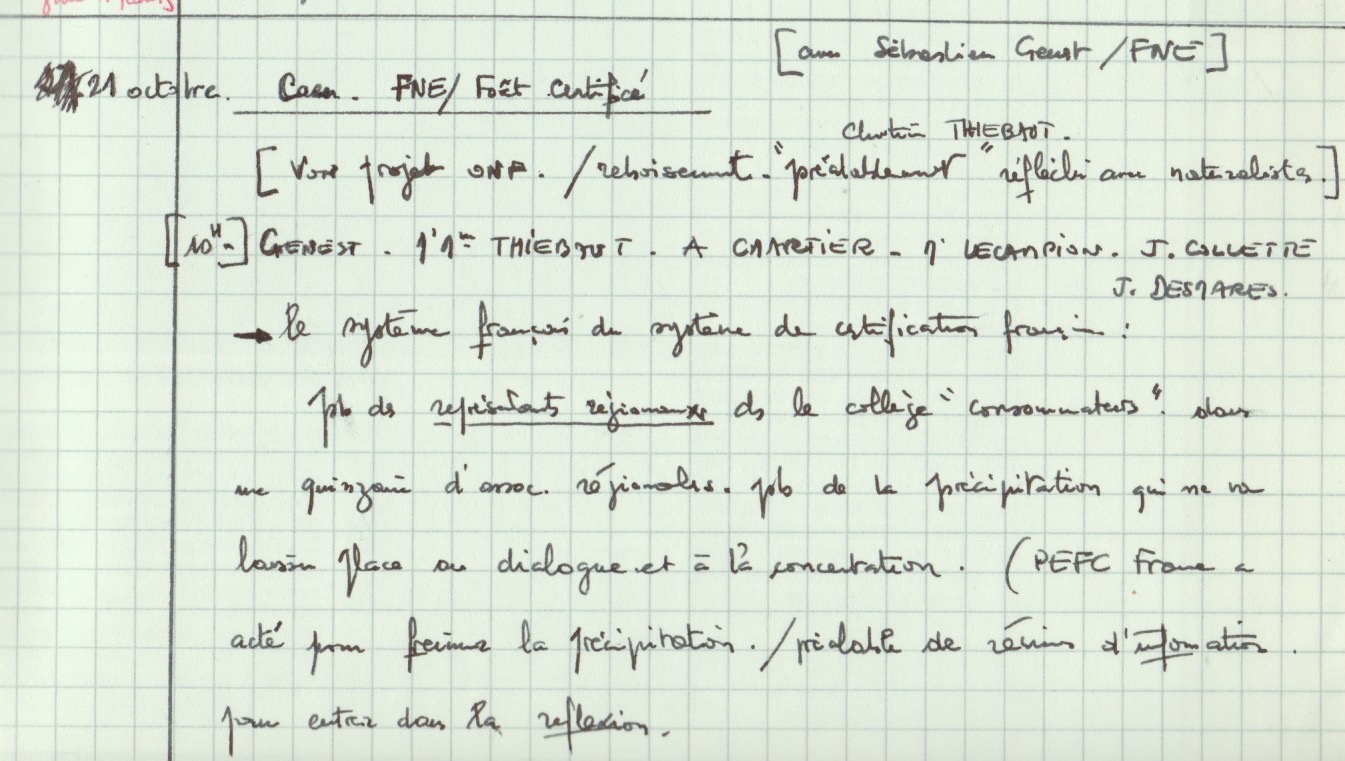 [avec Sébastien Genest / FNE]
21 octobre. Caen. FNE / Forêt Certifié
THIEBAUT.
[Voir projet ONF. / reboisement. "préalablement" réfléchi avec naturalistes.]
[10H-] GENEST. THIEBAUT. A CHARTIER - LECAMPION. J. COLLETTE
J. DESMARES.
→ le système français du système de certification français :
pb des représentants régionaux ds le collège "consommateurs". dans
une quinzaine d'assoc. régionales. pb de la précipitation qui ne va
laisser place au dialogue et à la concertation. (PEFC France a
acté pour freiner la précipitation. / préalable de réunions d'information.
pour entrer dans la reflexion.